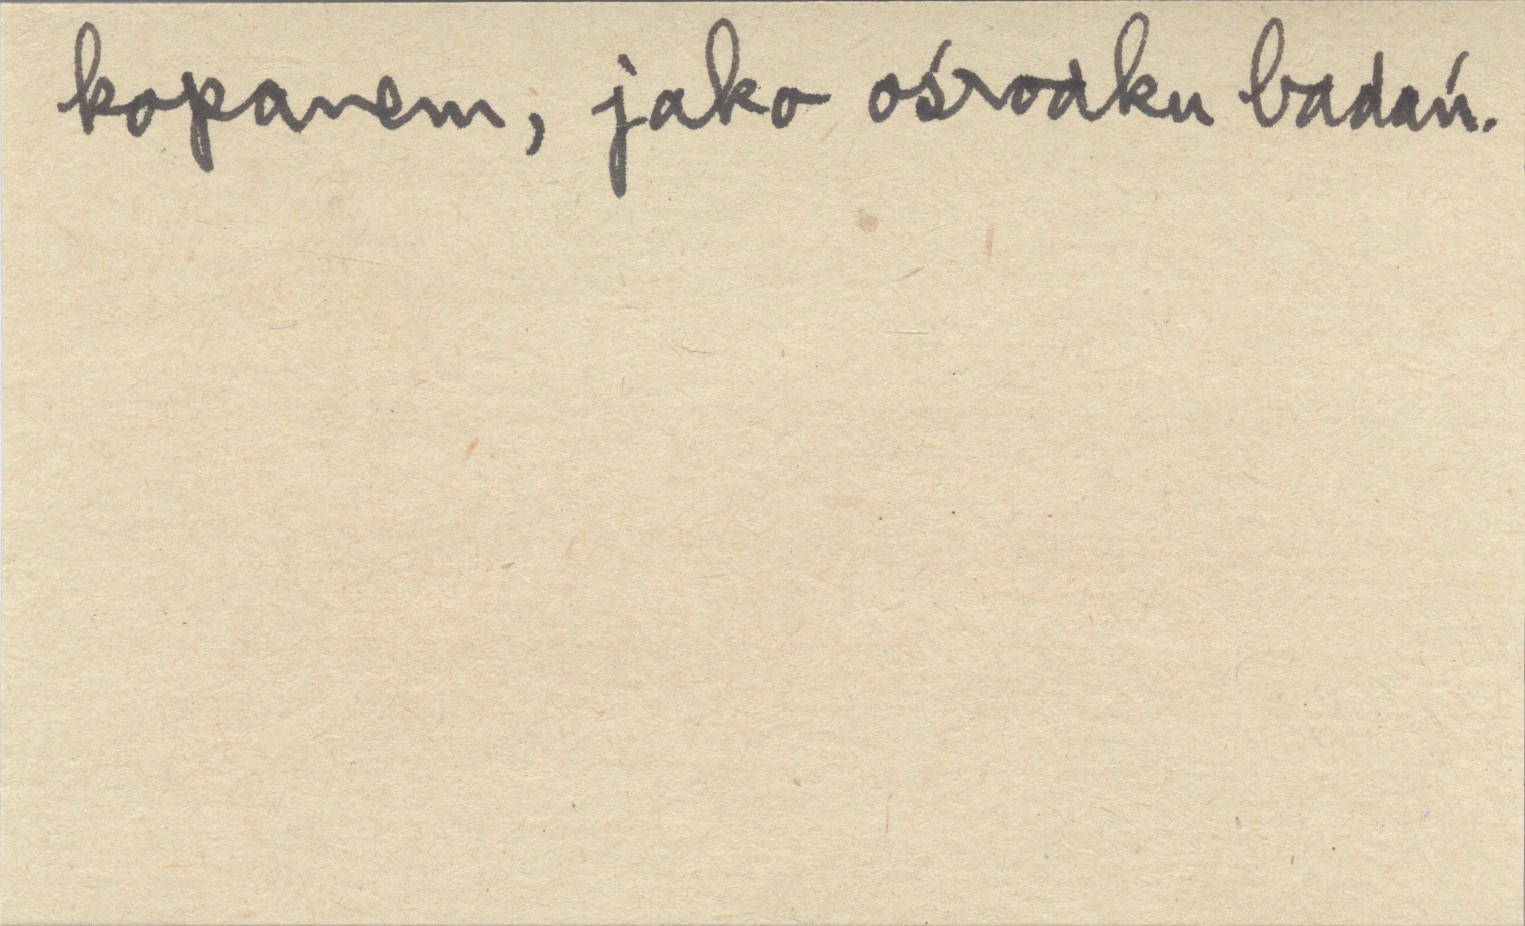 kopanem, jako ośrodku badań.